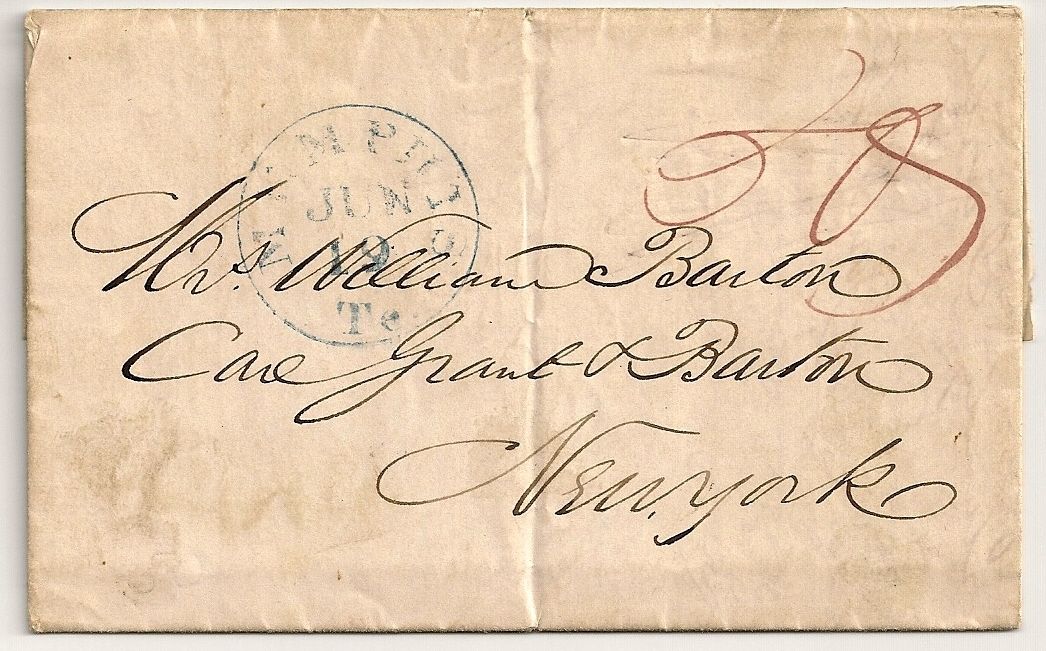 MEMPHIS
JUN
19
Te.
Mrs. William Barton
Care Grant & Barton
New York